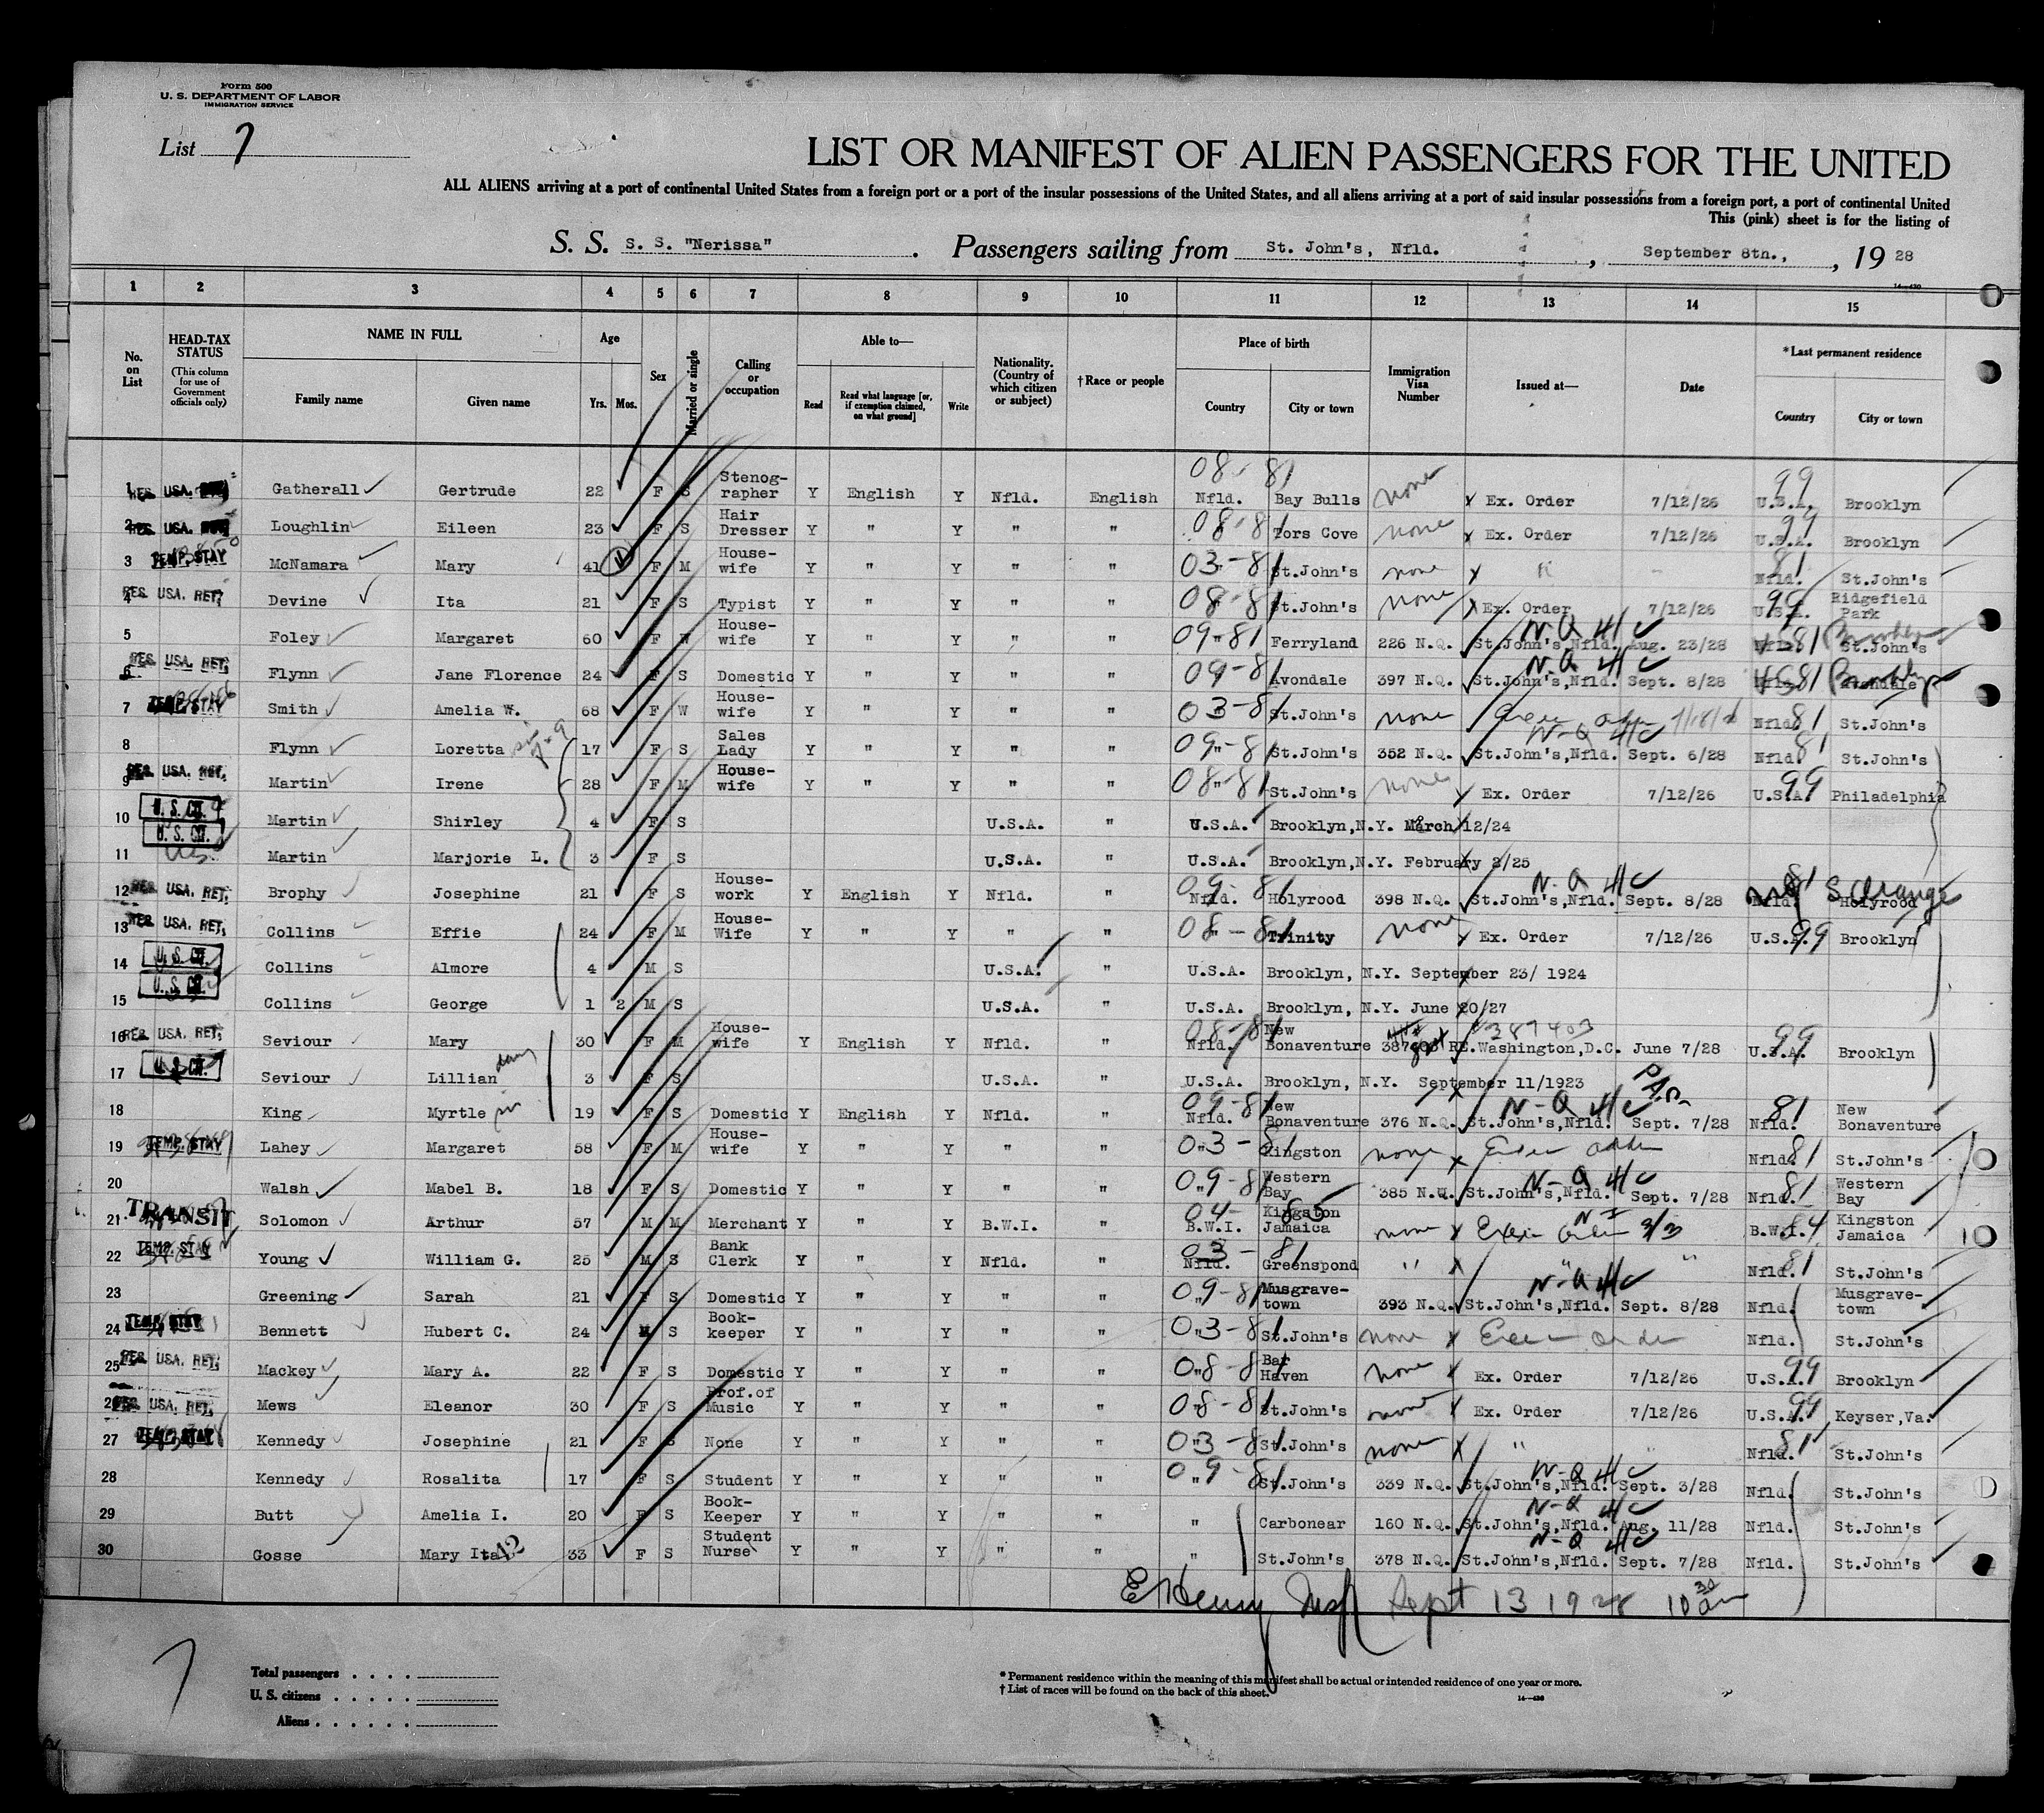 Form 500
U. S. DEPARTMENT OF LABOR
IMMIGRATION SERVICE
List 7
LIST OR MANIFEST OF ALIEN PASSENGERS FOR THE UNITED
ALL ALIENS arriving at a port of continental United States from a foreign port or a port of the insular possessions of the United States, and all aliens arriving at a port of said insular possessions from a foreign port, a port of continental United
This (pink) sheet is for the listing of
S. S. S. S. "Nerissa" . Passengers sailing from St. John's, Nfld. , September 8th., , 19 28
1 2 3 4 5 6 7 8 9 10 11 12 13 14 15
No. on List HEAD-TAX STATUS (This column for use of Government officials only) NAME IN FULL Family name Given name Age Yrs. Mos. Sex Married or single Calling or occupation Able to— Read Read what language [or, if exemption claimed, on what ground] Write Nationality. (Country of which citizen or subject) †Race or people Place of birth Country City or town Immigration Visa Number Issued at— Date *Last permanent residence Country City or town
1 RES. USA. Gatherall Gertrude 22 F S Stenographer Y English Y Nfld. English 08-81 Nfld. Bay Bulls none x Ex. Order 7/12/26 99 U.S.A. Brooklyn
2 RES. USA. Loughlin Eileen 23 F S Hair Dresser Y " Y " " 08-81 Tors Cove none x Ex. Order 7/12/26 99 U.S.A. Brooklyn
3 TEMP. STAY McNamara Mary 41 F M House-wife Y " Y " " 03-81 St.John's none x 81 Nfld. St.John's
4 RES. USA. RET. Devine Ita 21 F S Typist Y " Y " " 08-81 St.John's none x Ex. Order 7/12/26 99 U.S.A. Ridgefield Park
5 Foley Margaret 60 F W House-wife Y " Y " " 09-81 Ferryland 226 N.Q. St.John's,Nfld. N-Q 4/c Aug. 23/28 Nfld. 81 St.John's Brooklyn
6 RES. USA. RET. Flynn Jane Florence 24 F S Domestic Y " Y " " 09-81 Avondale 397 N.Q. St.John's,Nfld. N-Q 4/c Sept. 8/28 Nfld. 81 Avondale Brooklyn
7 TEMP. STAY Smith Amelia W. 68 F W House-wife Y " Y " " 03-81 St.John's none Nfld. 81 St.John's
8 Flynn Loretta 17 F S Sales Lady Y " Y " " 09-81 St.John's 352 N.Q. St.John's,Nfld. N-Q 4/c Sept. 6/28 Nfld. 81 St.John's
9 RES. USA. RET. Martin Irene 28 F M House-wife Y " Y " " 08-81 St.John's none x Ex. Order 7/12/26 U.S.A. 99 Philadelphia
10 U. S. CIT. Martin Shirley 4 F S U.S.A. " U.S.A. Brooklyn,N.Y. March 12/24
11 U. S. CIT. Martin Marjorie L. 3 F S U.S.A. " U.S.A. Brooklyn,N.Y. February 2/25
12 RES. USA. RET. Brophy Josephine 21 F S House-work Y English Y Nfld. " 09-81 Nfld. Holyrood 398 N.Q. St.John's,Nfld. N-Q 4/c Sept. 8/28 Nfld. 81 Holyrood S Orange
13 RES. USA. RET. Collins Effie 24 F M House-Wife Y " Y " " 08-81 Trinity none x Ex. Order 7/12/26 U.S.A. 99 Brooklyn
14 U. S. CIT. Collins Almore 4 M S U.S.A. " U.S.A. Brooklyn, N.Y. September 23/ 1924
15 U. S. CIT. Collins George 1 2 M S U.S.A. " U.S.A. Brooklyn, N.Y. June 20/27
16 RES. USA. RET. Seviour Mary 30 F M House-wife Y English Y Nfld. " 08-81 Nfld. New Bonaventure 387403 RE.Washington,D.C. June 7/28 U.S.A. 99 Brooklyn
17 U. S. CIT. Seviour Lillian 3 F S U.S.A. " U.S.A. Brooklyn, N.Y. September 11/1923
18 King Myrtle 19 F S Domestic Y English Y Nfld. " 09-81 Nfld. New Bonaventure 376 N.Q. St.John's,Nfld. N-Q 4/c Sept. 7/28 Nfld. 81 New Bonaventure
19 TEMP. STAY Lahey Margaret 58 F M House-wife Y " Y " " 03-81 Kingston none x Nfld. 81 St.John's
20 Walsh Mabel B. 18 F S Domestic Y " Y " " 09-81 Western Bay 385 N.Q. St.John's,Nfld. N-Q 4/c Sept. 7/28 Nfld. 81 Western Bay
21 TRANSIT Solomon Arthur 57 M M Merchant Y " Y B.W.I. " 04-85 B.W.I. Kingston Jamaica none x 3/3 B.W.I. 84 Kingston Jamaica
22 TEMP. STAY Young William G. 25 M S Bank Clerk Y " Y Nfld. " 03-81 Nfld. Greenspond " x " " Nfld. 81 St.John's
23 Greening Sarah 21 F S Domestic Y " Y " " 09-81 Musgrave-town 393 N.Q. St.John's,Nfld. N-Q 4/c Sept. 8/28 Nfld. Musgrave-town
24 TEMP. STAY Bennett Hubert C. 24 M S Book-keeper Y " Y " " 03-81 St.John's none x Nfld. St.John's
25 RES. USA. RET. Mackey Mary A. 22 F S Domestic Y " Y " " 08-81 Bar Haven none x Ex. Order 7/12/26 U.S.A. 99 Brooklyn
26 RES. USA. RET. Mews Eleanor 30 F S Prof.of Music Y " Y " " 08-81 St.John's none x Ex. Order 7/12/26 U.S.A. 99 Keyser,Va.
27 TEMP. STAY Kennedy Josephine 21 F S None Y " Y " " 03-81 St.John's none x " " Nfld. 81 St.John's
28 Kennedy Rosalita 17 F S Student Y " Y " " 09-81 St.John's 339 N.Q. St.John's,Nfld. N-Q 4/c Sept. 3/28 Nfld. St.John's
29 Butt Amelia I. 20 F S Book-Keeper Y " Y " " " Carbonear 160 N.Q. St.John's,Nfld. N-Q 4/c Aug. 11/28 Nfld. St.John's
30 Gosse Mary Ita 33 F S Student Nurse Y " Y " " " St.John's 378 N.Q. St.John's,Nfld. N-Q 4/c Sept. 7/28 Nfld. St.John's
Sept 13 1928 10 30 am
7
Total passengers . . . .
U. S. citizens . . . . .
Aliens . . . . . .
* Permanent residence within the meaning of this manifest shall be actual or intended residence of one year or more.
† List of races will be found on the back of this sheet.